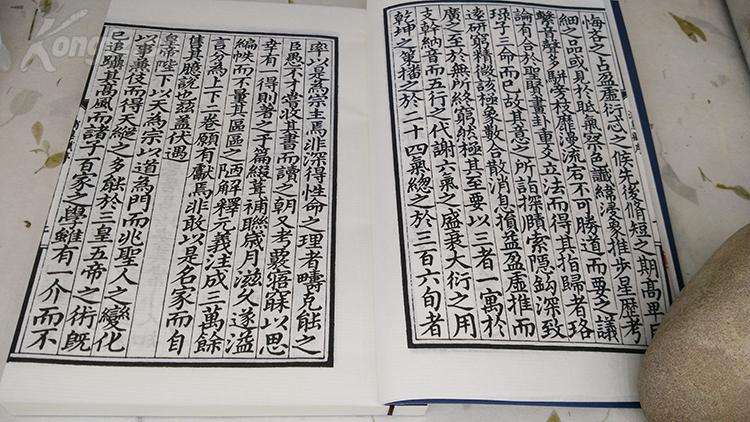 悔吝之占盈虛衍忒之候先後脩短之期高卑
細之品或見於眂氣察色讖緯象推步星曆考
聲音發多駢旁枝靡漫流宕不可勝道而要之議
論有合於聖賢畫卦重爻立法而得其指歸者珞
琭子三命而已故其意之所詣探賾索隱鈎深致
遠研窮精微該極象數合散消息損益盈虛推而
廣之至於無所終窮然極其至要以三者一寓於
支幹納音而五行之代謝六氣之盛衰大衍之用
乾坤之策播之於二十四氣總之於三百六旬者
率以是為宗主焉非深得性命之理者疇克能之
臣愚不才嘗收其書而讀之朝夕考覈寤寐以思
幸有一得則著之于篇綴葺補聯歲月滋久遂溢
編帙而不量其區區之陋解釋元義注成三萬餘
言分為上下二卷願有獻焉非敢以是名家而自
售其臆說也茲蓋伏遇
皇帝陛下以天為宗以道為門而兆聖人之變化
以事兼伎而得天縱之多能於三皇五帝之術既
已追躡其高風而諸子百家之學雖有一介而不
Kong